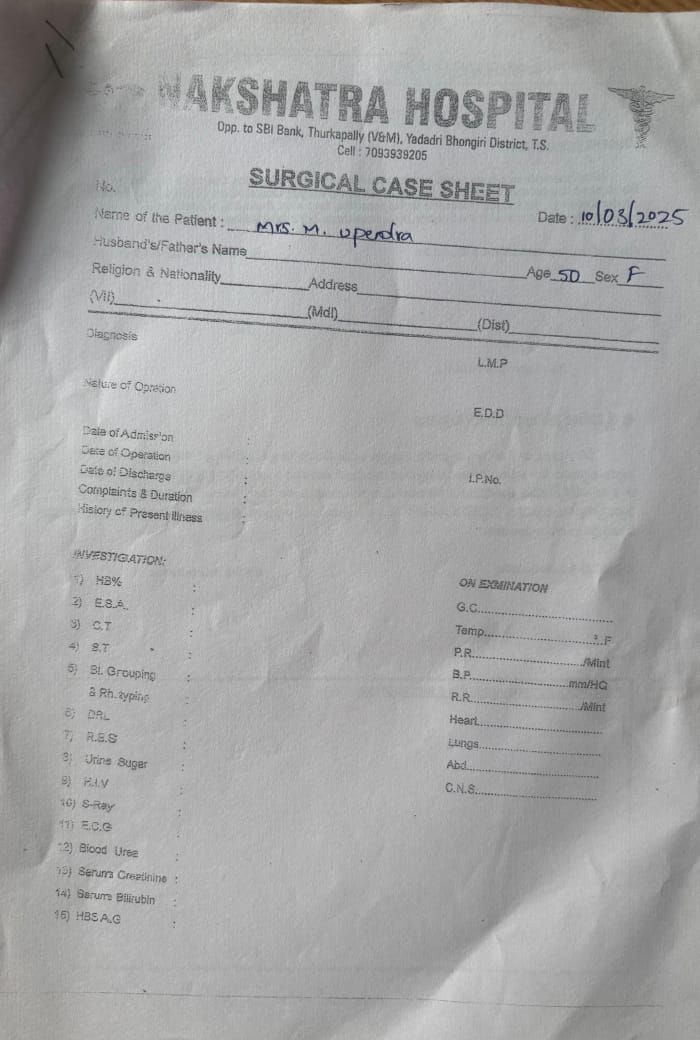 NAKSHATRA HOSPITAL
Opp. to SBI Bank, Thurkapally (V&M), Yadadri Bhongiri District, T.S.
Cell : 7093939205
SURGICAL CASE SHEET
No.
Date : 10/03/2025
Name of the Patient : Mrs. M. Upendra
Husband's/Father's Name
Age 50 Sex F
Religion & Nationality Address
(Vil) (Mdl) (Dist)
Diagnosis
L.M.P
Nature of Opration
E.D.D
Date of Admission :
Date of Operation :
Date of Discharge :
I.P.No.
Complaints & Duration :
History of Present Illness :
INVESTIGATION:
1) HB% :
2) E.S.A. :
3) C.T :
4) B.T :
5) Bl. Grouping :
& Rh. typing :
6) DRL :
7) R.B.S :
8) Urine Sugar :
9) H.I.V :
10) S-Ray :
11) E.C.G :
12) Blood Urea :
13) Serum Creatinine :
14) Serum Bilirubin :
15) HBSA.G :
ON EXMINATION
G.C.
Temp. °.F
P.R. /Mint
B.P. mm/HG
R.R. /Mint
Heart
Lungs
Abd.
C.N.S.